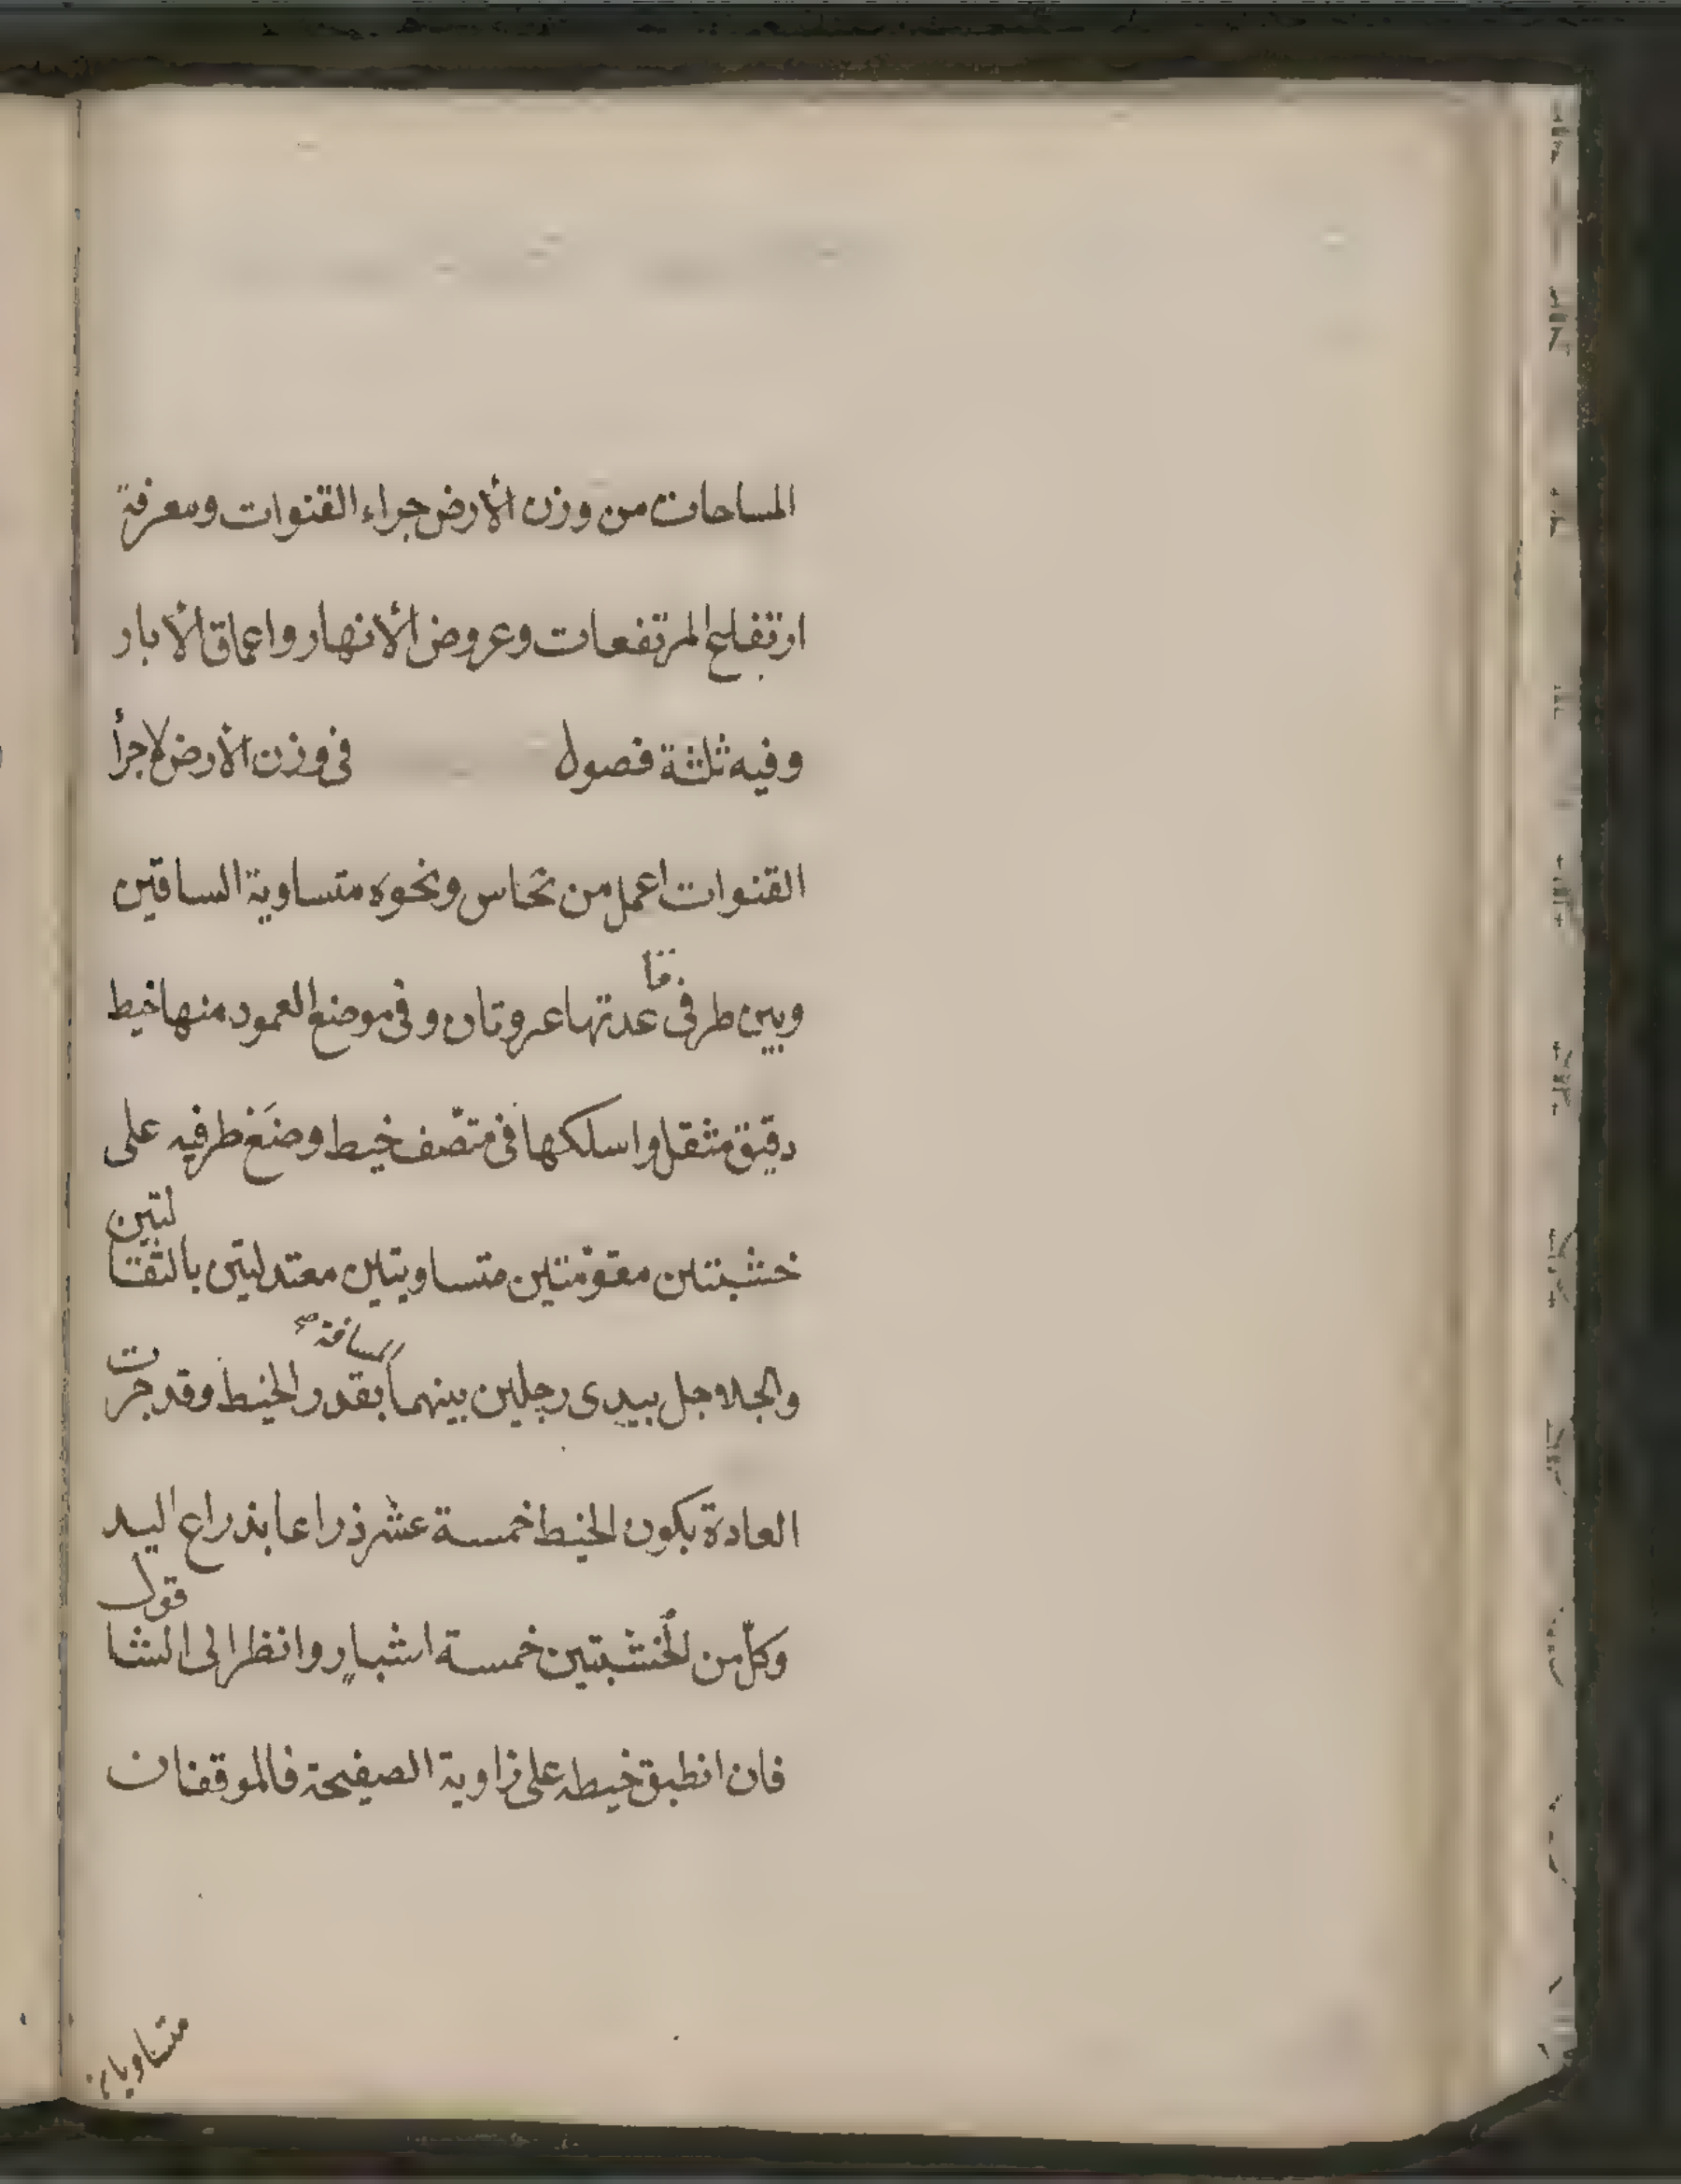 المساحات من وزن الأرض جراء القنوات ومعرفة
ارتفاع المرتفعات وعروض الأنهار واعماق الأبار
وفيه ثلثة فصول في وزن الأرض لاجرأ
القنوات اعمل من نحاس ونحوه متساوية الساقين
وبين طرفي قا عدتها عروتان وفي موضع العمود منها خيط
دقيق مثقل واسلكها في متصّف خيط وضَع طرفيه على
خشبتين مقومتين متساويتين معتدليتن بالثقا لتين
والجلاجل بيدى رجلين بينهما المسافة صح بقدر الخيط وقد جرت
العادة بكون الخيط خمسة عشر ذراعا بذراع اليد
وكلّ من الخشبتين خمسة اشبار وانظر الى الشا قول
فان انطبق خيطه على زاوية الصفيحة فالموقفان
متساويان